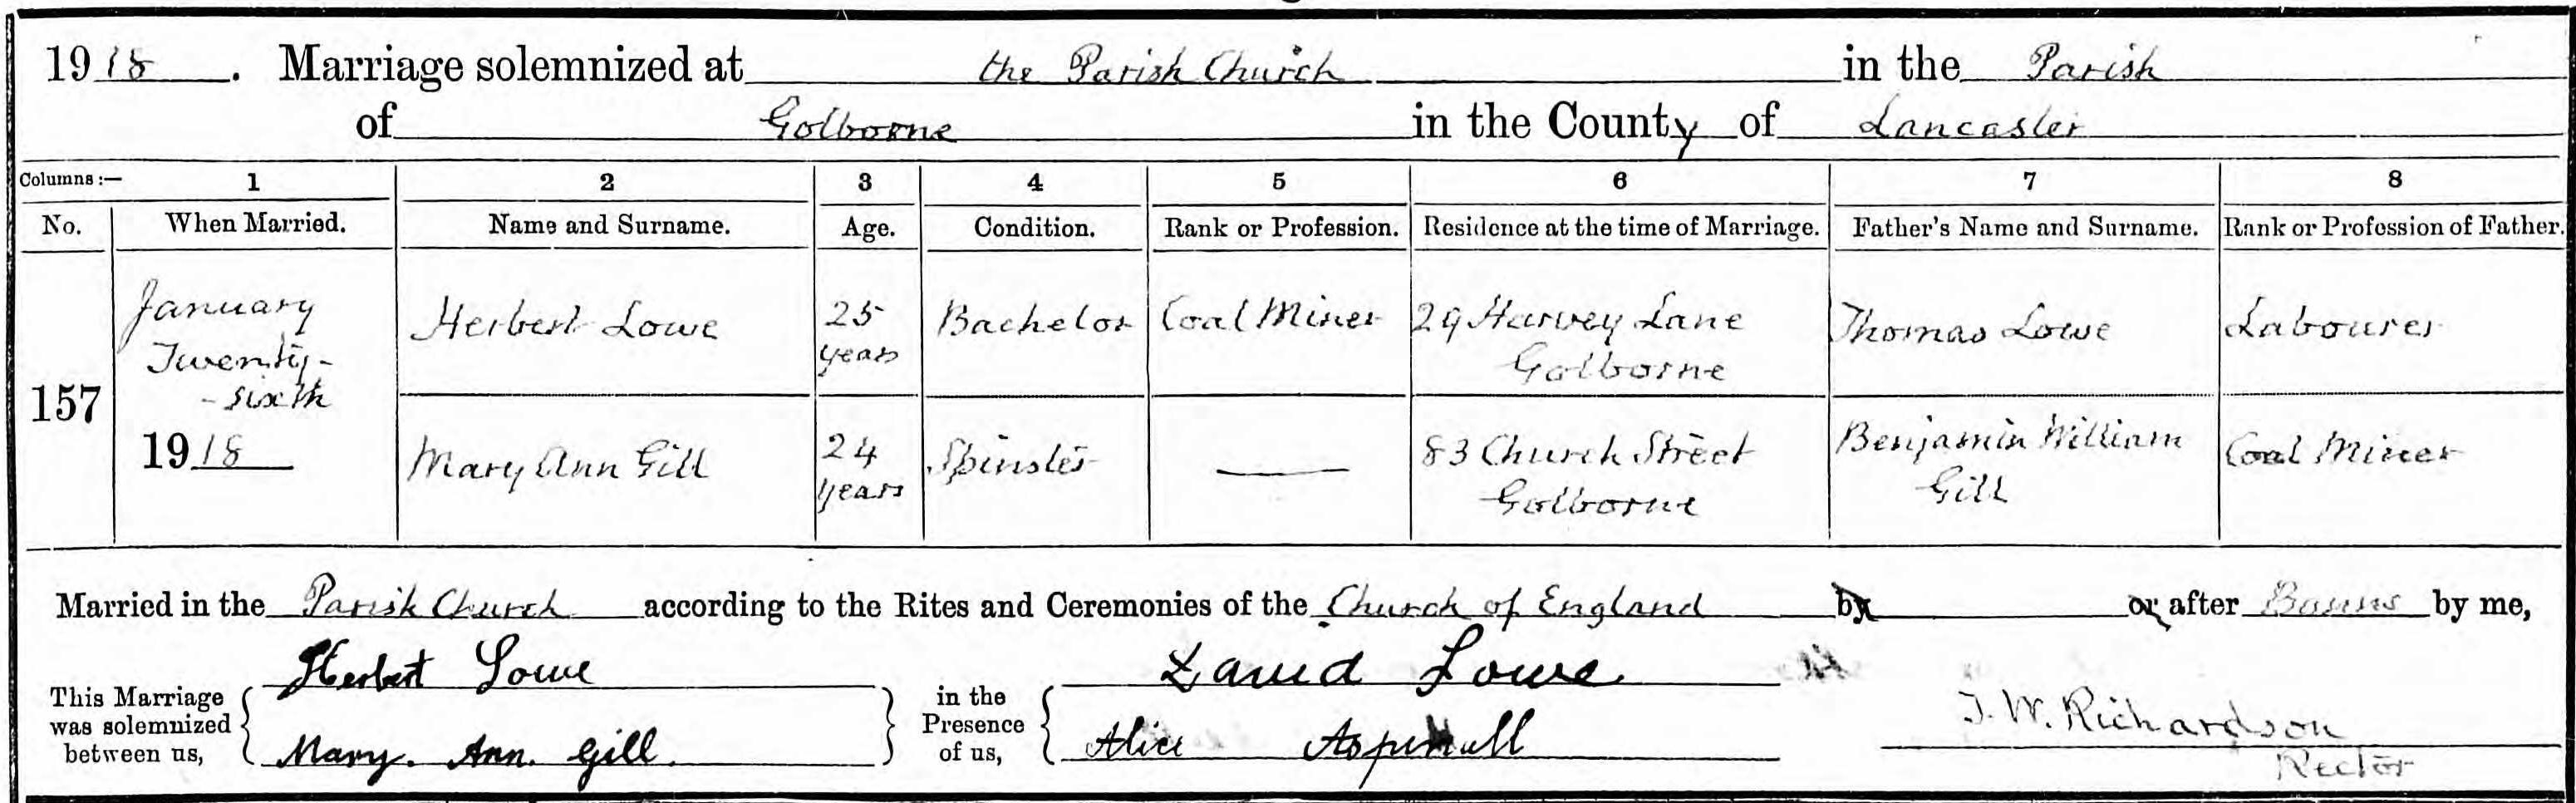 1918. Marriage solemnized at the Parish Church in the Parish
of Golborne in the County of Lancaster
Columns:— 1 2 3 4 5 6 7 8
No. When Married. Name and Surname. Age. Condition. Rank or Profession. Residence at the time of Marriage. Father's Name and Surname. Rank or Profession of Father.
157
January
Twenty-
-sixth
1918
Herbert Lowe
25
years
Bachelor
Coal Miner
29 Harvey Lane
Golborne
Thomas Lowe
Labourer
Mary Ann Gill
24
years
Spinster
83 Church Street
Golborne
Benjamin William
Gill
Coal Miner
Married in the Parish Church according to the Rites and Ceremonies of the Church of England by or after Banns by me,
This Marriage
was solemnized
between us,
Herbert Lowe
Mary. Ann. Gill.
in the
Presence
of us,
David Lowe
Alice Aspinall
J. W. Richardson
Rector